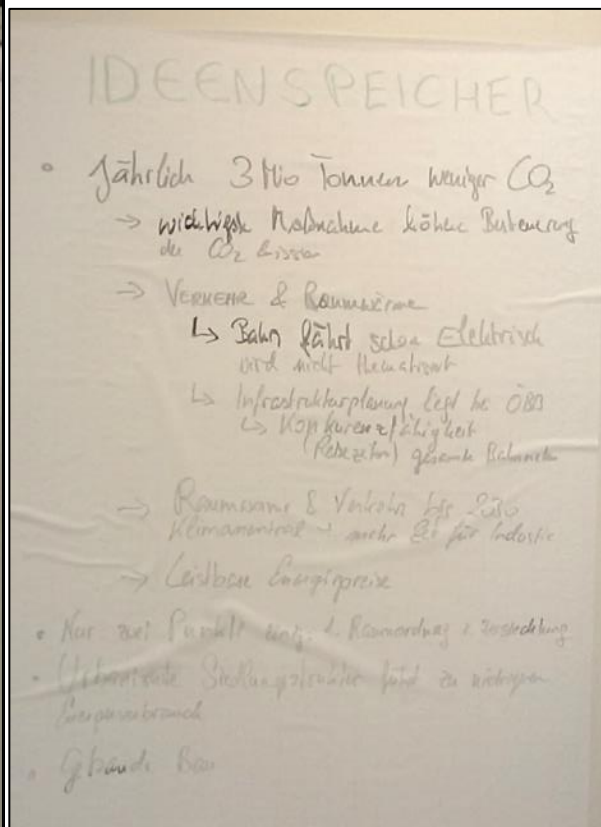 IDEENSPEICHER
• Jährlich 3 Mio Tonnen weniger CO₂
→ wichtigste Maßnahme höhere Besteuerung
der CO₂
→ VERKEHR & Raumwärme
↳ Bahn fährt schon Elektrisch
wird nicht thematisiert
↳ Infrastrukturplanung liegt bei ÖBB
↳ Konkurrenzfähigkeit
gesamte
→ Raumwärme & Verkehr bis
mehr für
→ Leistbare Energiepreise
• Nur zwei Punkte 1. Raumordnung 2. Zersiedelung
• Siedlungsstruktur führt zu
Energieverbrauch
•